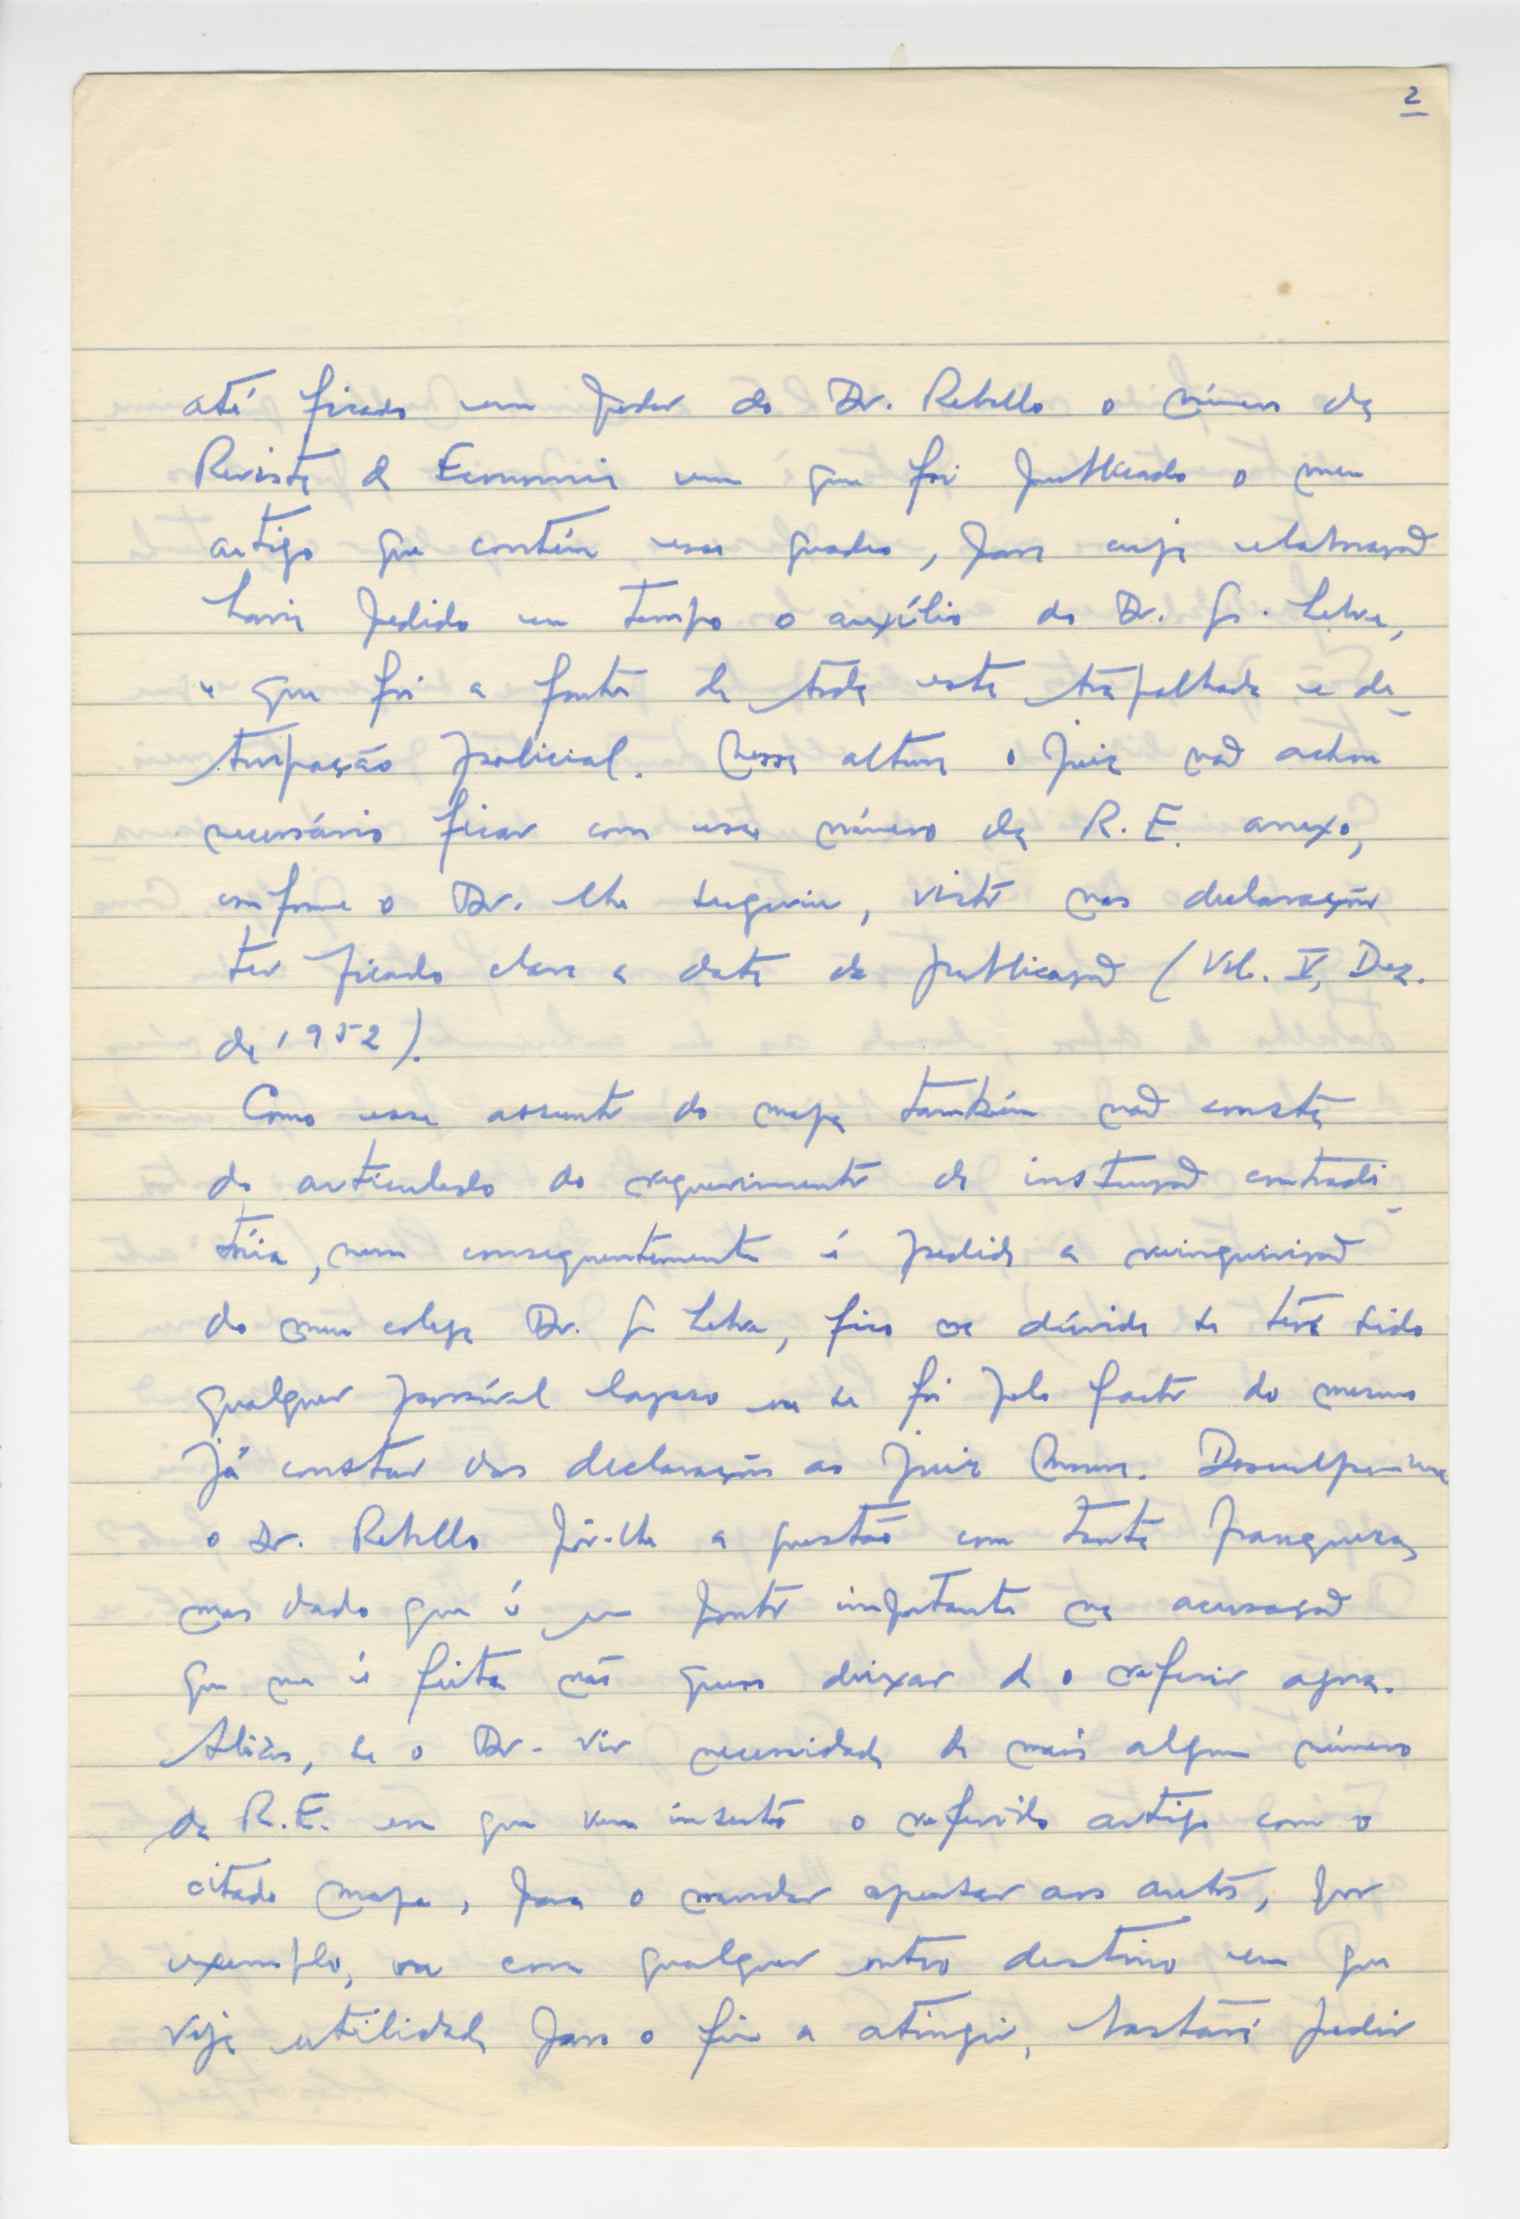 2
até ficado em poder do Dr. Rebello o número da
Revista de Economia em que foi publicado o meu
artigo que contém esse quadro, para cuja elaboração
havia pedido em tempo o auxílio do Dr. 
e que foi a fonte de toda esta trapalhada e de-
turpação policial. Nessa altura o Juiz não achou
necessário ficar com esse número da R. E. anexo,
conforme o Dr. lhe sugeriu, visto nas declarações
ter ficado clara a data da publicação (Vol. V, Dez.
de 1952).
Como esse assunto do mapa também não consta
do articulado do requerimento de instrução contradi-
tória, nem consequentemente é pedida a reinquirição
do meu colega Dr. fico na dúvida se terá sido
qualquer possível lapso ou se foi pelo facto do mesmo
já constar das declarações ao Juiz Desculpar-me-á
o Dr. Rebello pôr-lhe a questão com tanta franqueza,
mas dado que é um ponto importante na acusação
que me é feita não quero deixar de o referir agora.
Aliás, se o Dr. vir necessidade de mais algum número
da R.E. em que vem inserto o referido artigo com o
citado mapa, para o mandar apensar aos autos, por
exemplo, ou com qualquer outro destino em que
veja utilidade para o fim a atingir, bastará pedir